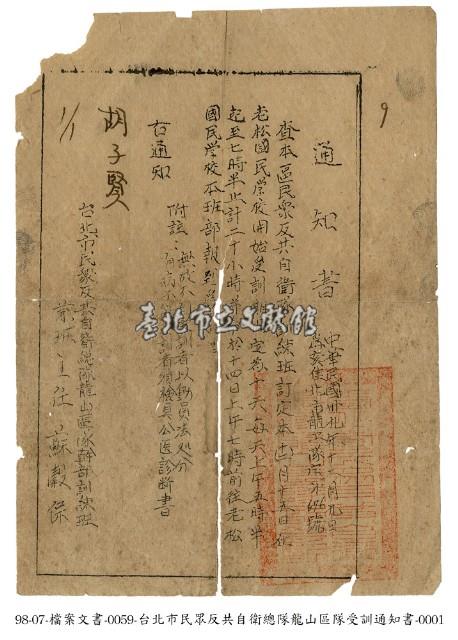 9
通知書
中華民國卅九年十一月九日
查本區民眾反共自衛隊幹部訓練班訂定本十一月十五日在
老松國民學校開始受訓期定為十天每天上午五時半
起至七時半止計二十小時於十四日上午七時前往老松
國民學校本班部報到
附註：無故不受訓者以動員法処分
有病不受訓者須檢具公医診断書
右通知
胡子賢
1/1
台北市民眾反共自衛總隊龍山區隊幹部訓練班
兼班主任 蘇穀保
臺北市立文獻館
98-07-檔案文書-0059-台北市民眾反共自衛總隊龍山區隊受訓通知書-0001